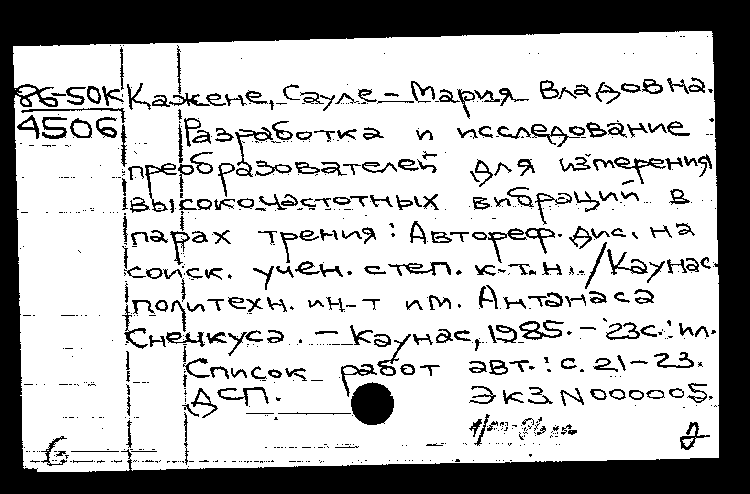 86-50К Кажене, Сауле-Мария Владовна.
4506 Разработка и исследование
преобразователей для измерения
высокочастотных вибраций в
парах трения: Автореф. дис. на
соиск. учен. степ. к.т.н../Каунас.
политехн. ин-т им. Антанаса
Снечкуса. - Каунас, 1985. - 23с.: ил.
Список работ авт.: с. 21-23.
ДСП. Экз N 000005.
6 2